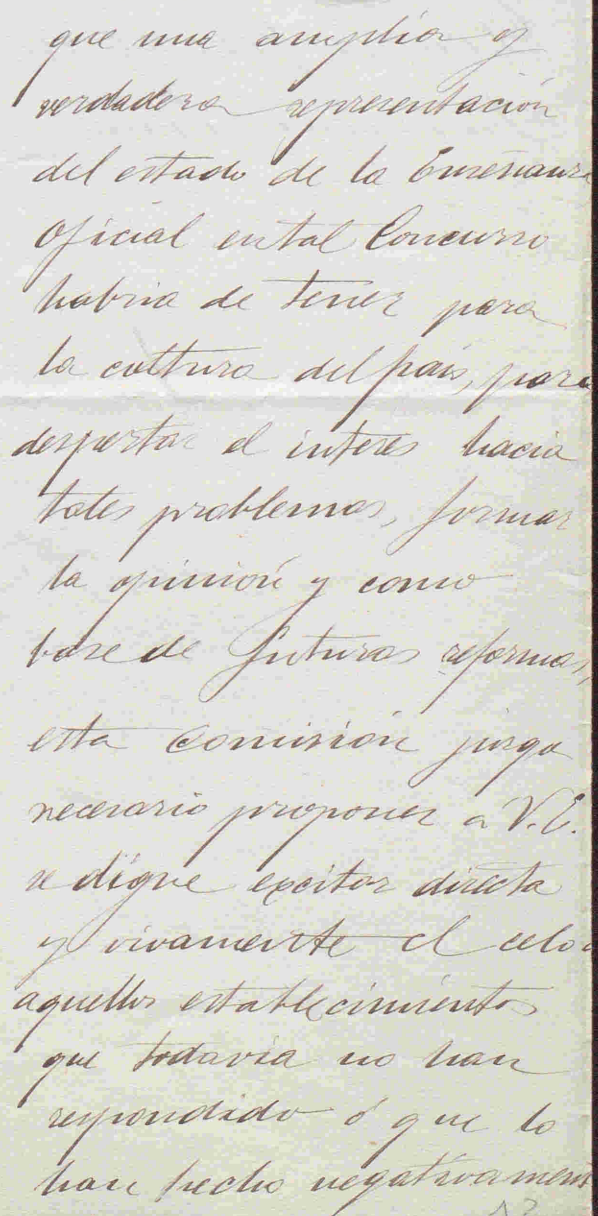 que una amplia y
verdadera representación
del estado de la Enseñanza
oficial en tal Concurso
habria de tener para
la cultura del país, para
despertar el interés hacia
tales problemas, formar
la opinión y como
base de futuras reformas,
esta Comisión juzga
necesario proponer a V.E.
se digne excitar directa
y vivamente el celo d
aquellos establecimientos
que todavia no han
respondido ó que lo
han hecho negativament